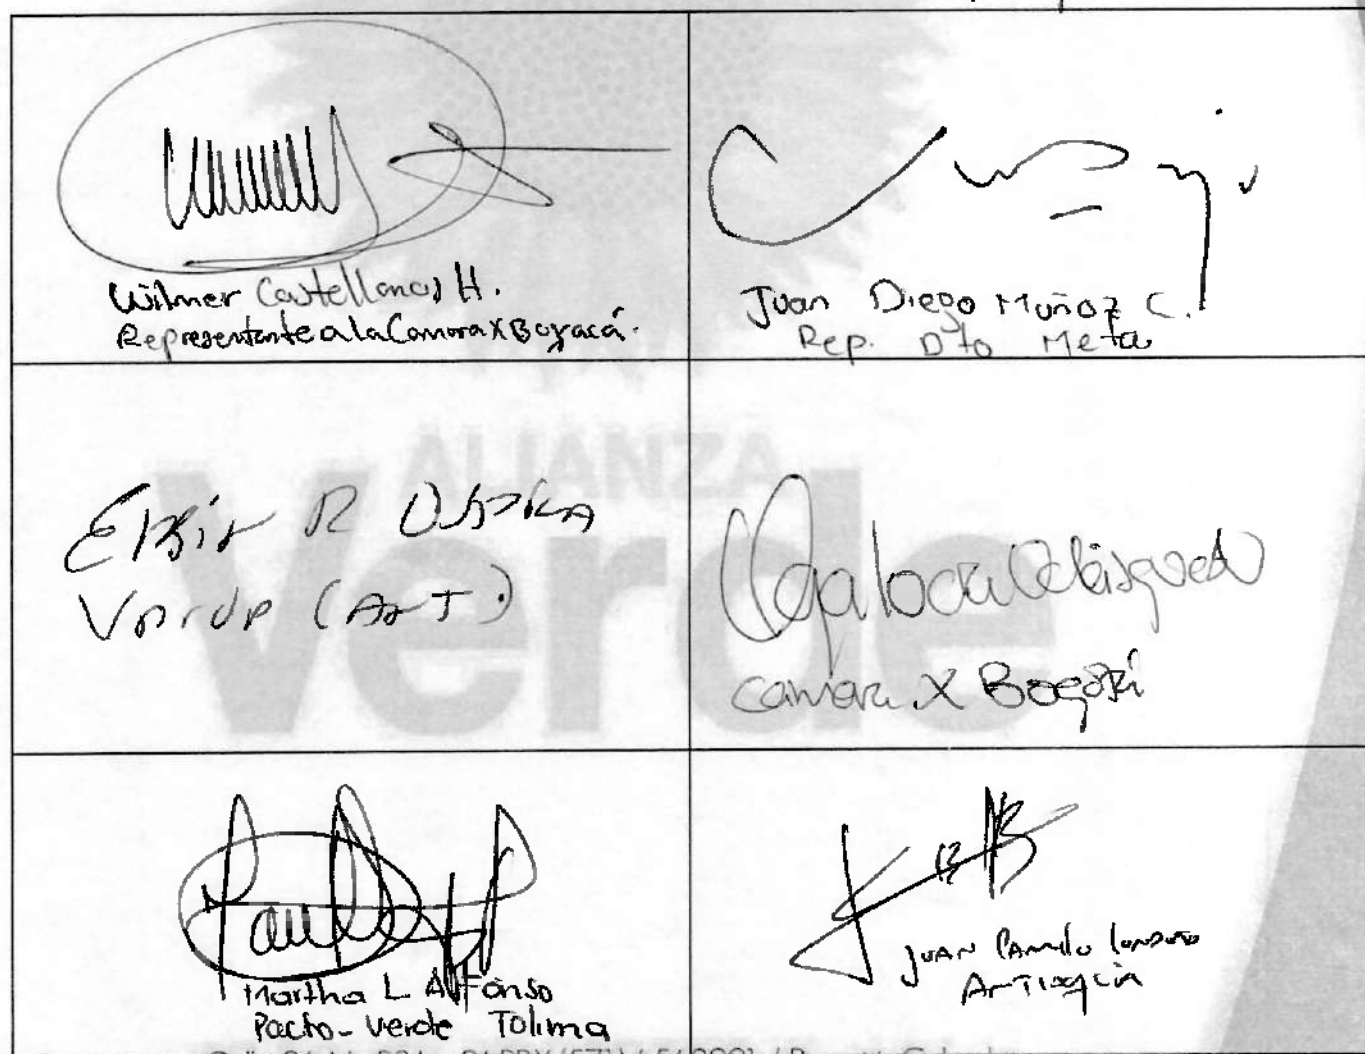 Wilmer Castellanos H.
Representante a la Camara X Boyacá.
Juan Diego Muñoz C.
Rep. Dto Meta
ALIANZA
Verde
Elkin R Ospina
Verde (Ant.)
Catalina Velásquez
Camara X Bogotá
Martha L Alfonso
Pacto-Verde Tolima
Juan Camilo Londoño
Antioquia